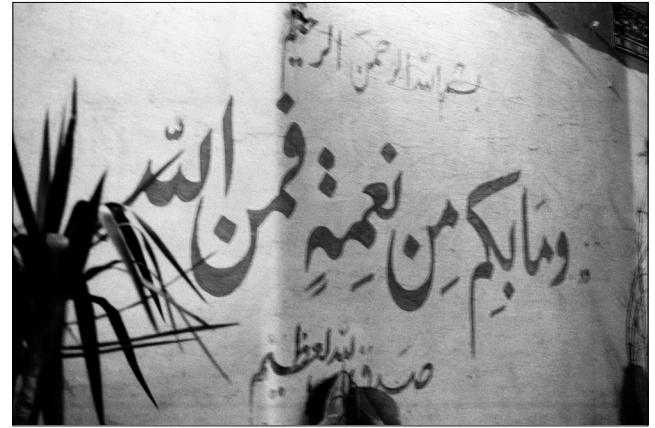 بسم الله الرحمن الرحيم
وَمَا بِكُم مِن نِعمَةٍ فَمِن الله
صدق الله العظيم